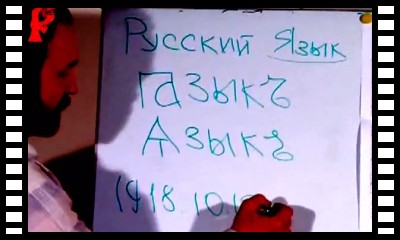 Русский Язык
Ꙗзыкъ
Ѧзыкъ
1918.10.1